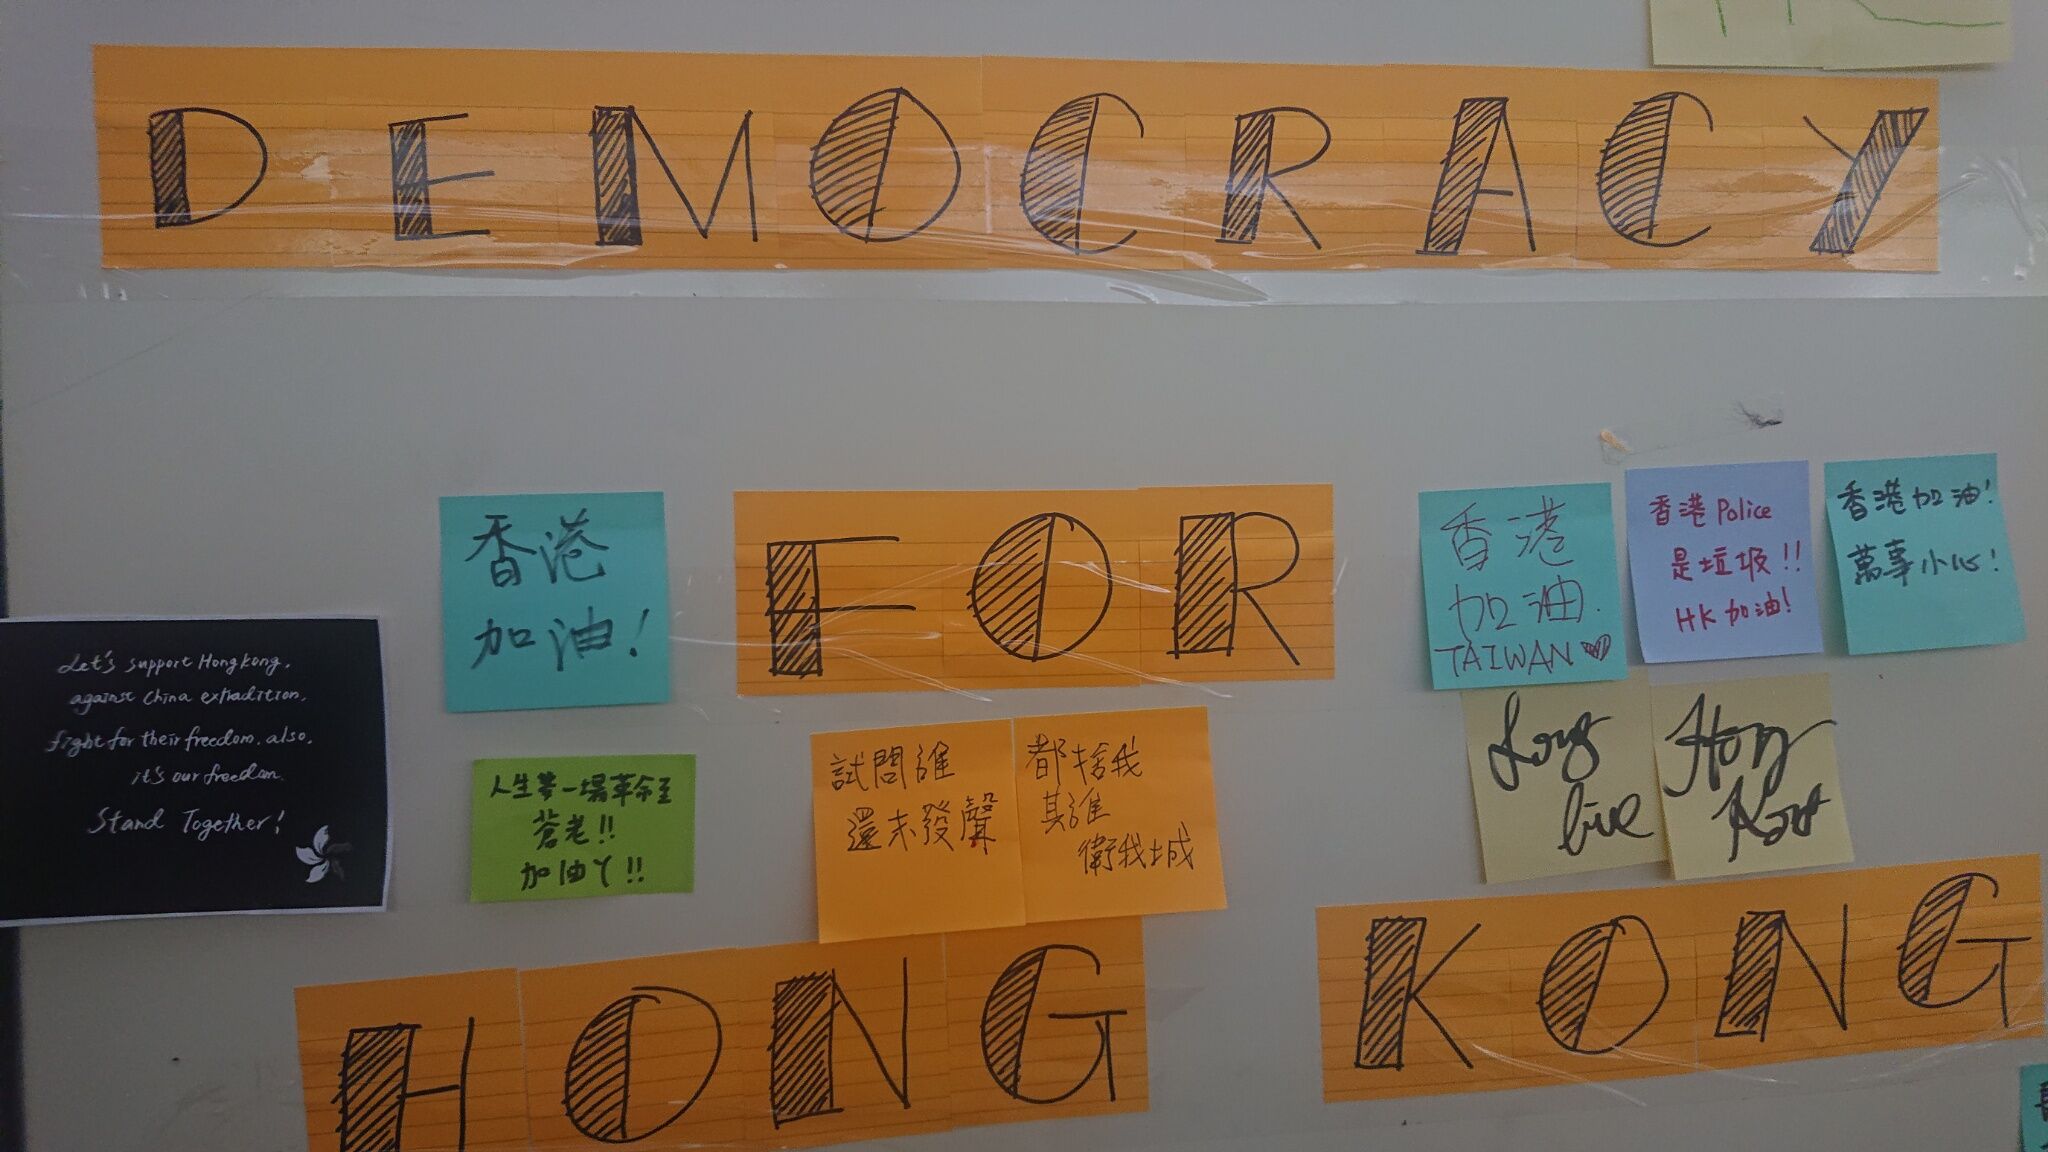 DEMOCRACY
香港
加油!
FOR
香港
加油.
TAIWAN
香港Police
是垃圾!!
HK加油!
香港加油!
萬事小心!
Let's support Hongkong.
against China extradition.
fight for their freedom. also.
it's our freedom.
Stand Together!
人生等一場革命至
蒼老!!
加油丫!!
試問誰
還未發聲
都捨我
其誰
衛我城
Long
live
Hong
Kong
HONG KONG